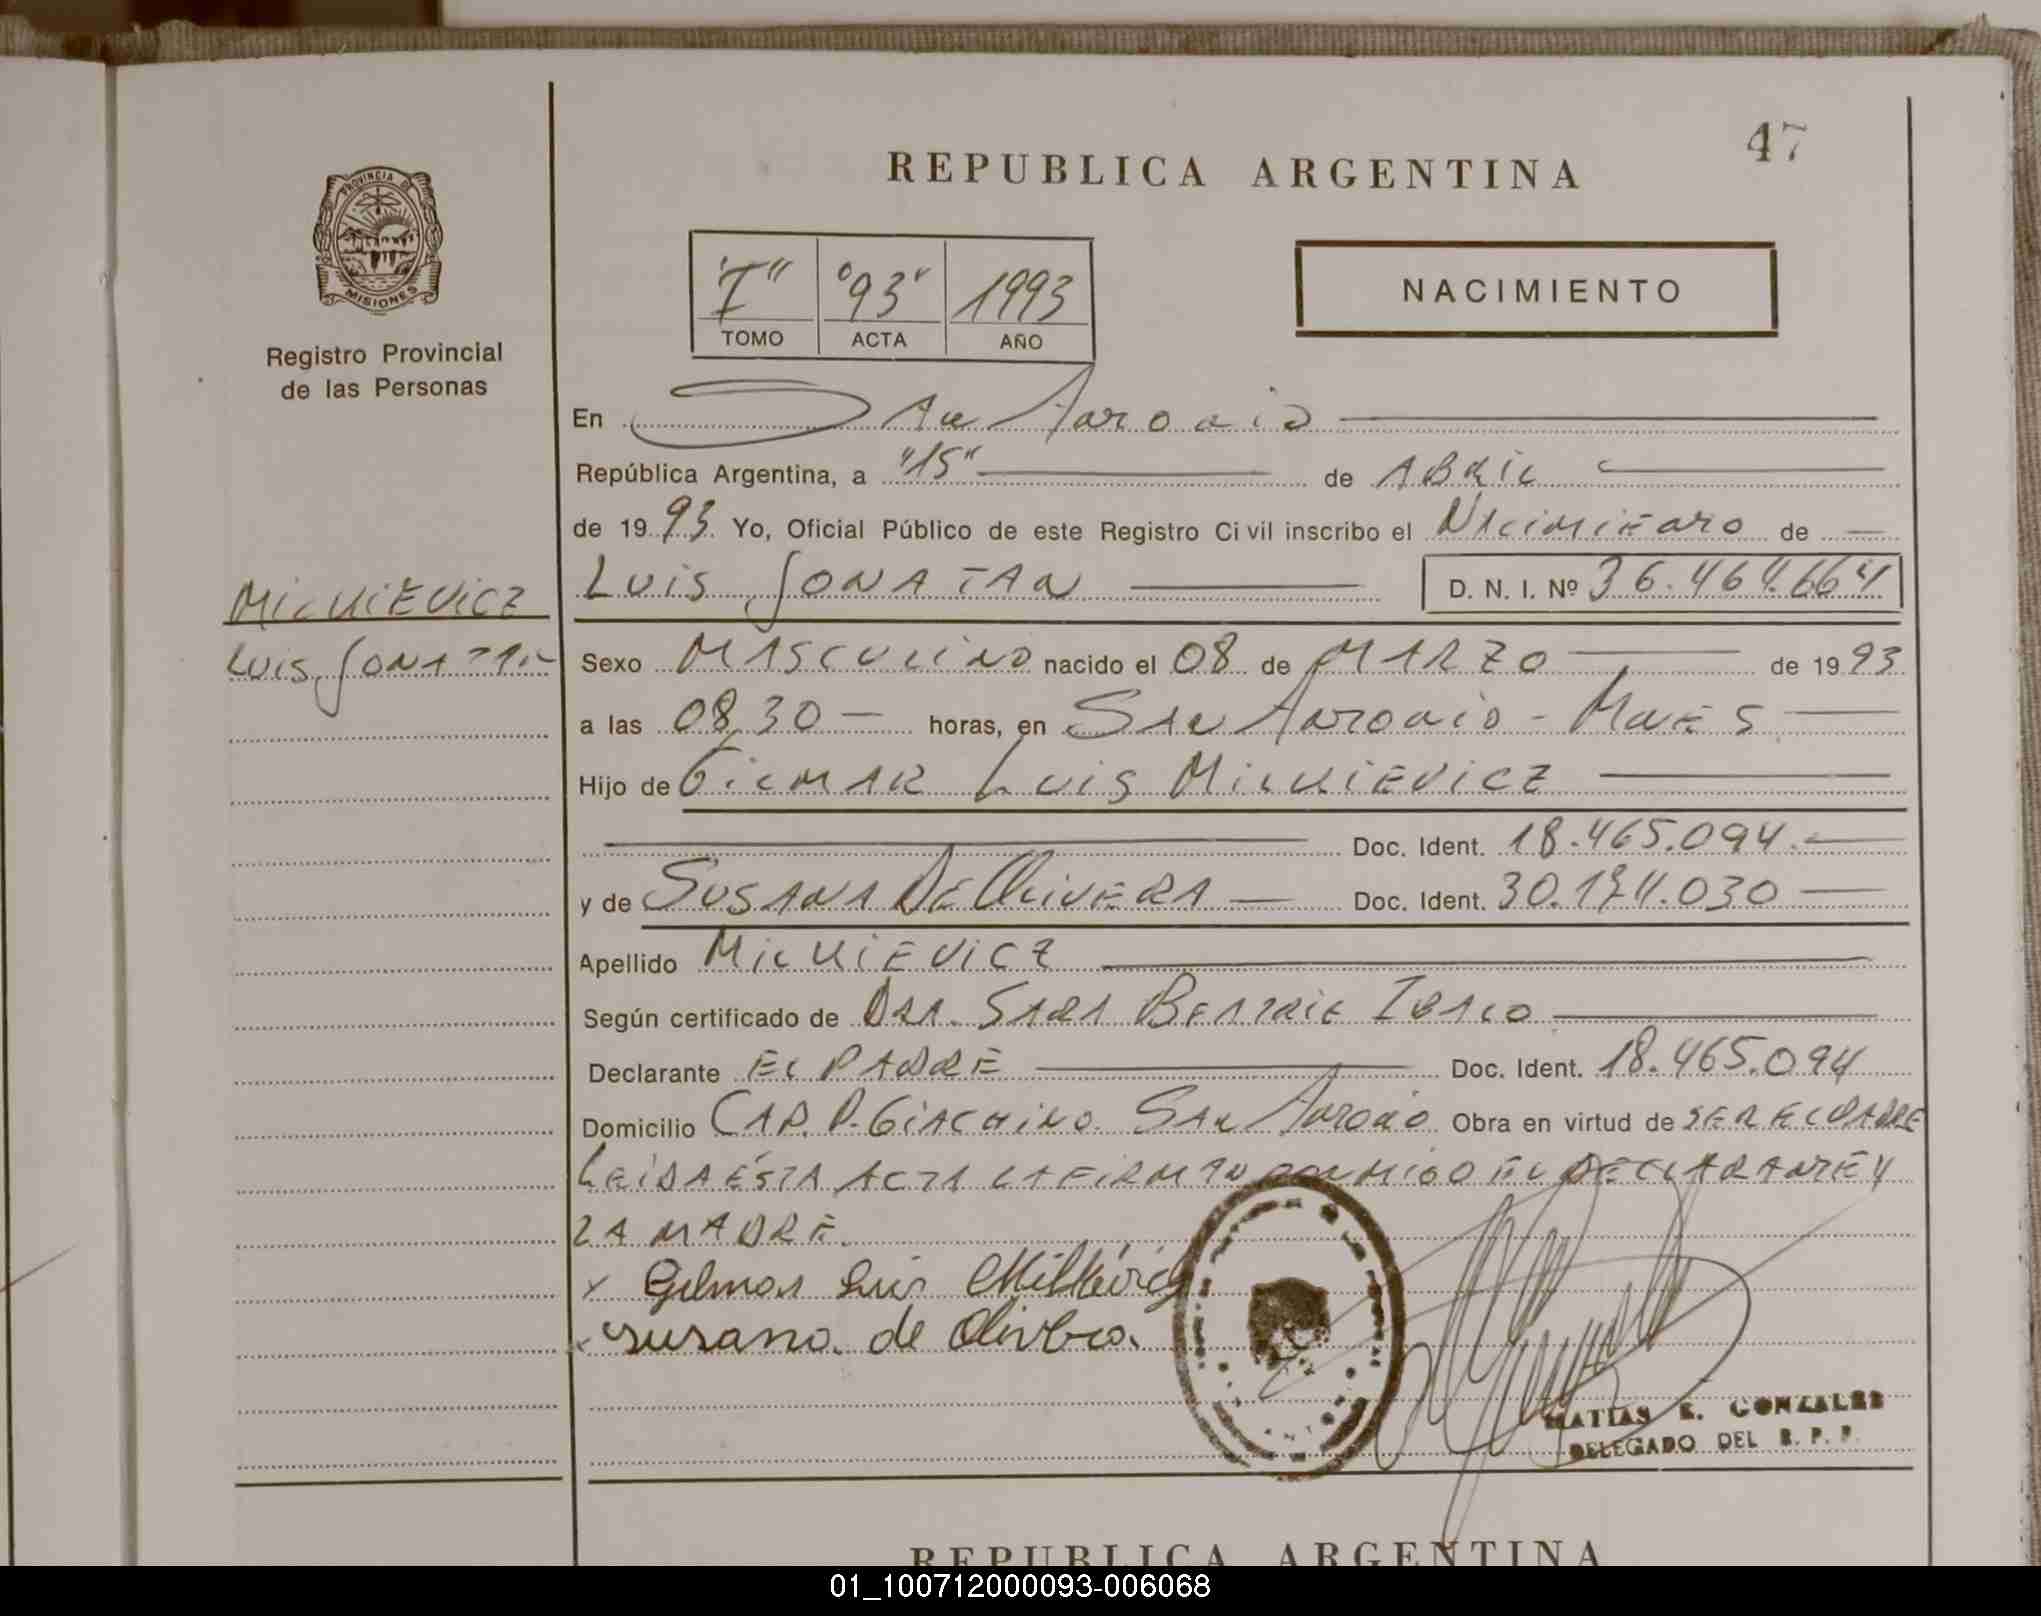 47
REPUBLICA ARGENTINA
PROVINCIA DE
MISIONES
Registro Provincial
de las Personas
"I" "93" 1993
TOMO ACTA AÑO
NACIMIENTO
En San Antonio
República Argentina, a "15" de ABRIL
de 1993 Yo, Oficial Público de este Registro Civil inscribo el Nacimiento de
LUIS JONATAN D. N. I. Nº 36.464.664
MILKIEVICZ
LUIS JONATAN
Sexo MASCULINO nacido el 08 de MARZO de 1993
a las 08,30 horas, en SAN ANTONIO - MNES
Hijo de GILMAR LUIS MILKIEVICZ
Doc. Ident. 18.465.094.
y de SUSANA DE OLIVERA Doc. Ident. 30.174.030
Apellido MILKIEVICZ
Según certificado de DRA. SARA BEATRIZ
Declarante EL PADRE Doc. Ident. 18.465.094
Domicilio CAP. P. GIACHINO SAN ANTONIO Obra en virtud de SER EL PADRE
LEIDA ÉSTA ACTA LA FIRMAN CONMIGO EL DECLARANTE Y
LA MADRE.
x Gilmar Luis Milkievicz
x susana de Olivera
MATIAS E. GONZALES
DELEGADO DEL R. P. P.
REPUBLICA ARGENTINA
01_100712000093-006068